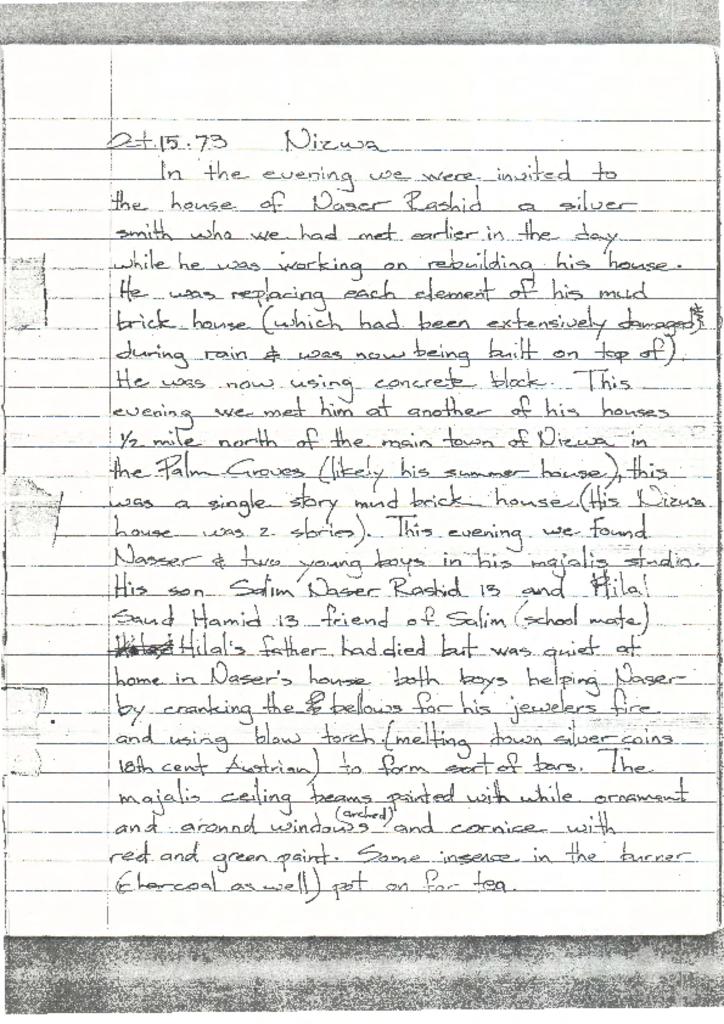 Oct.15.73 Nizwa
In the evening we were invited to
the house of Naser Rashid a silver
smith who we had met earlier in the day
while he was working on rebuilding his house.
He was replacing each element of his mud
brick house (which had been extensively damaged
during rain & was now being built on top of)
He was now using concrete block. This
evening we met him at another of his houses
1/2 mile north of the main town of Nizwa in
the Palm Groves (likely his summer house), this
was a single story mud brick house (His Nizwa
house was 2 stories). This evening we found
Nasser & two young boys in his majalis studio.
His son Salim Naser Rashid 13 and Hilal
Saud Hamid 13 friend of Salim (school mate)
Hilal's father had died but was quiet at
home in Naser's house both boys helping Naser
by cranking the bellows for his jewelers fire
and using blow torch (melting down silver coins
18th cent Austrian) to form sort of bars. The
majalis ceiling beams painted with while ornament
and around windows (arched) and cornice with
red and green paint. Some insense in the burner
(charcoal as well) pot on for tea.